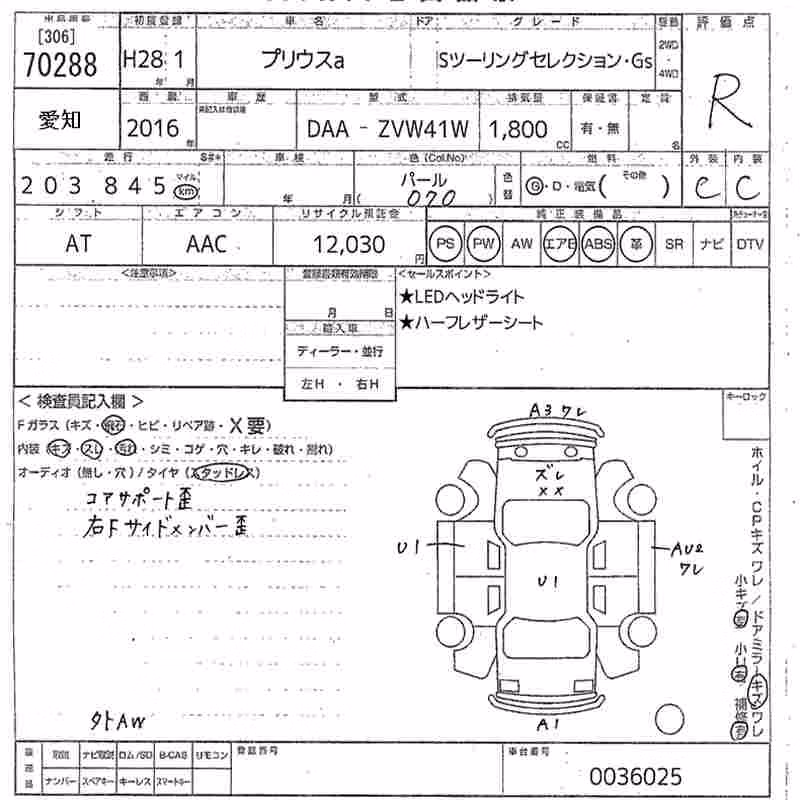 出品番号 初度登録 車名 ドア グレード 駆動 評価点
[306]
70288 H28 1 プリウスa Sツーリングセレクション・Gs 2WD・4WD R
年 月
愛知 西暦 車歴 型式 排気量 保証書 定員
2016 年 DAA - ZVW41W 1,800 CC 有・無 名
走行 車検 色(Col.No) 燃料 外装 内装
203 845 マイル km 年 月 パール 070 色替 G・D・電気 (その他) C C
シフト エアコン リサイクル預託金 純正装備品
AT AAC 12,030 円 PS PW AW エアB ABS 革 SR ナビ DTV
<注意事項> <セールスポイント>
★LEDヘッドライト
月 日
★ハーフレザーシート
輸入車
ディーラー・並行
左H ・ 右H
キーロック
< 検査員記入欄 >
Fガラス(キズ・飛石・ヒビ・リペア跡・X要)
内装 (キズ・スレ・汚れ・シミ・コゲ・穴・キレ・破れ・割れ)
オーディオ(無し・穴)/タイヤ(スタッドレス)
コアサポート歪
右Fサイドメンバー歪
外AW
A3ワレ
ズレ
XX
U1
U1
AU2
ワレ
A1
ホイル・CPキズ ワレ/ドアミラーキズ ワレ
小キズ有 小U有 補修有
取説 ナビ取説 ロム/SD B-CAS リモコン 登録番号 車台番号
ナンバー スペアキー キーレス スマートキー 0036025